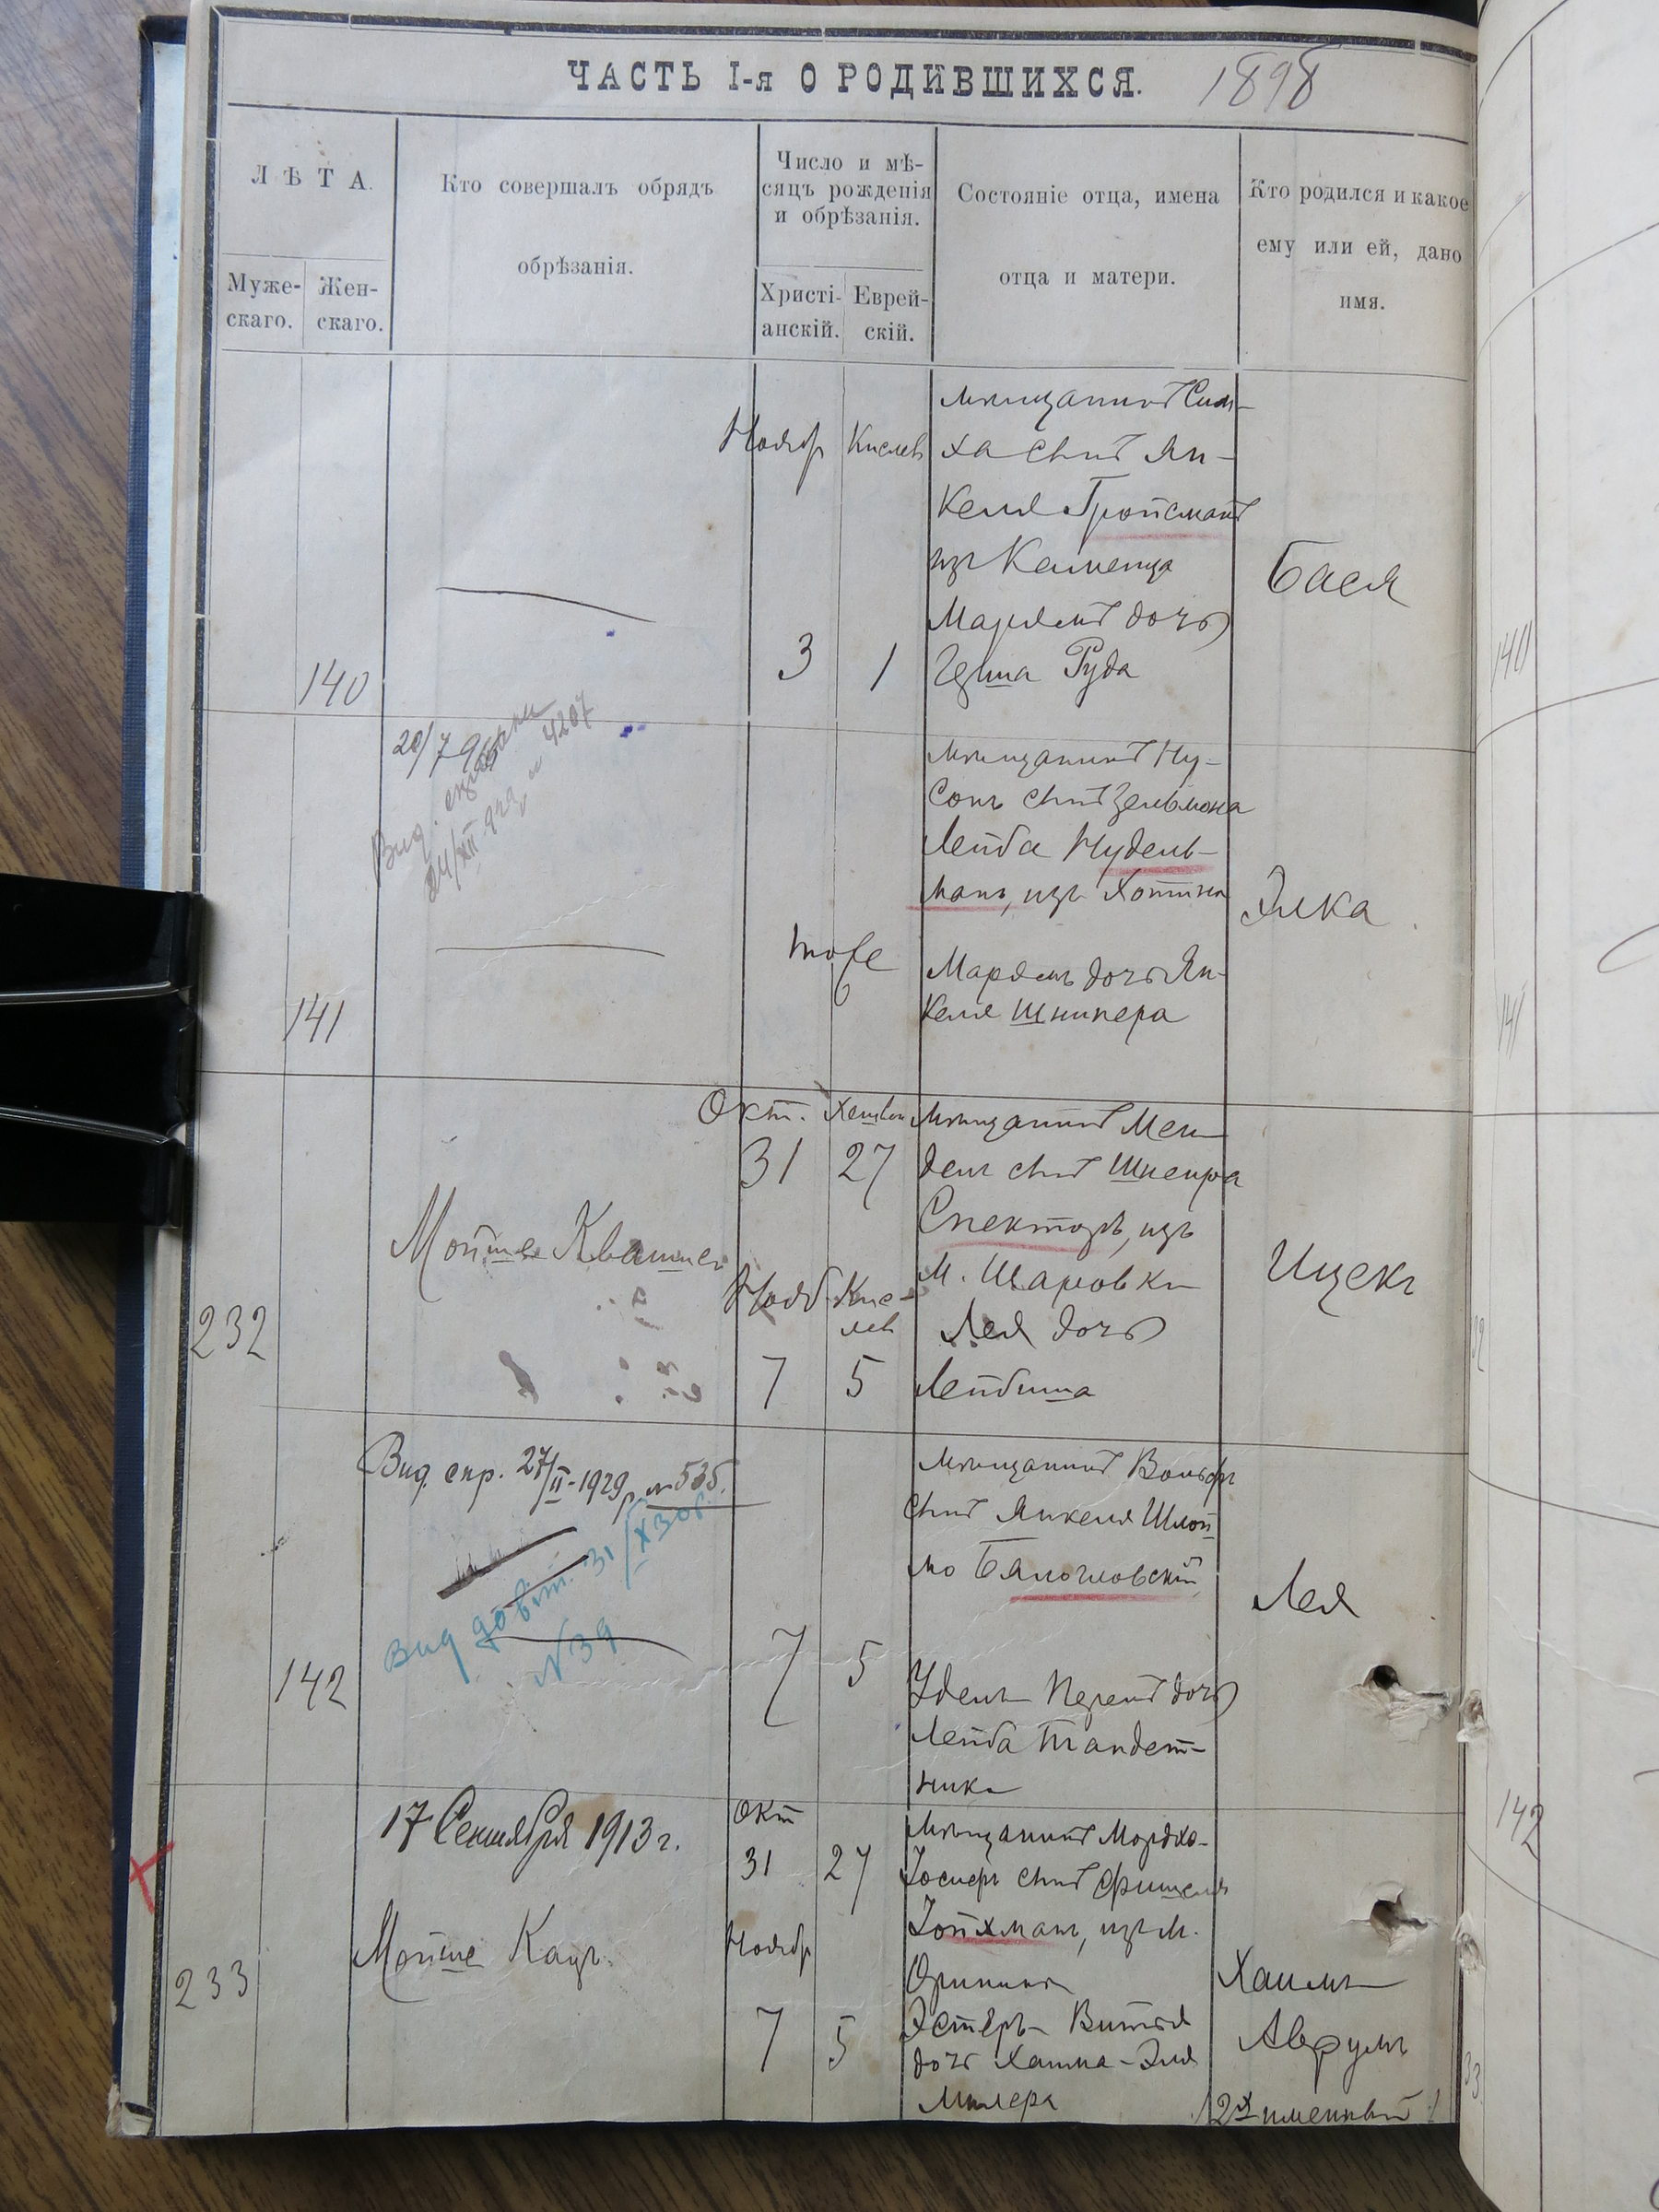 ЧАСТЬ I-я О РОДИВШИХСЯ. 1898
ЛѢТА.
Муже-
скаго.
Жен-
скаго.
Кто совершалъ обрядъ
обрѣзанія.
Число и мѣ-
сяцъ рожденія
и обрѣзанія.
Христі-
анскій.
Еврей-
скій.
Состояніе отца, имена
отца и матери.
Кто родился и какое
ему или ей, дано
имя.
140
Ноябр
3
Кислев
1
мѣщанинъ Сим-
ха сынъ Ян-
келя Гройсманъ
изъ Каменца
Марямъ дочь
Руда
Бася
141
20/7
24/XII 4207
тоже
мѣщанинъ Ну-
сонъ сынъ Зельмона
Лейба Нудель-
манъ, изъ Хотина
Марямъ дочь Ян-
келя Шнипера
Элка
232
Мойше
Окт.
31
27
Нояб
7
Кис-
лев
5
мѣщанинъ Мен-
дель сынъ Шнеира
Спекторъ, изъ
м. Шаровки
Лея дочь
Лейбиша
Ицекъ
142
Вид. спр. 27/II-1929 р. № 535.
Вид довіт. 31/X 30р.
N 39
7
5
мѣщанинъ Вольфъ
сынъ Янкеля Шлой
мо
дочь
Лейба Тандет-
ника
Лея
233
17 Сентября 1913 г.
Мойше Кацъ.
Окт
31
27
Ноябр
7
5
Мѣщанинъ Мордко-
Іосифъ сынъ Фишеля
Іойхманъ, изъ м.
Оринина
Эстеръ Витья
дочь Хаима-Эля
Милера
Хаимъ
Аврумъ
12х именный
140
141
142